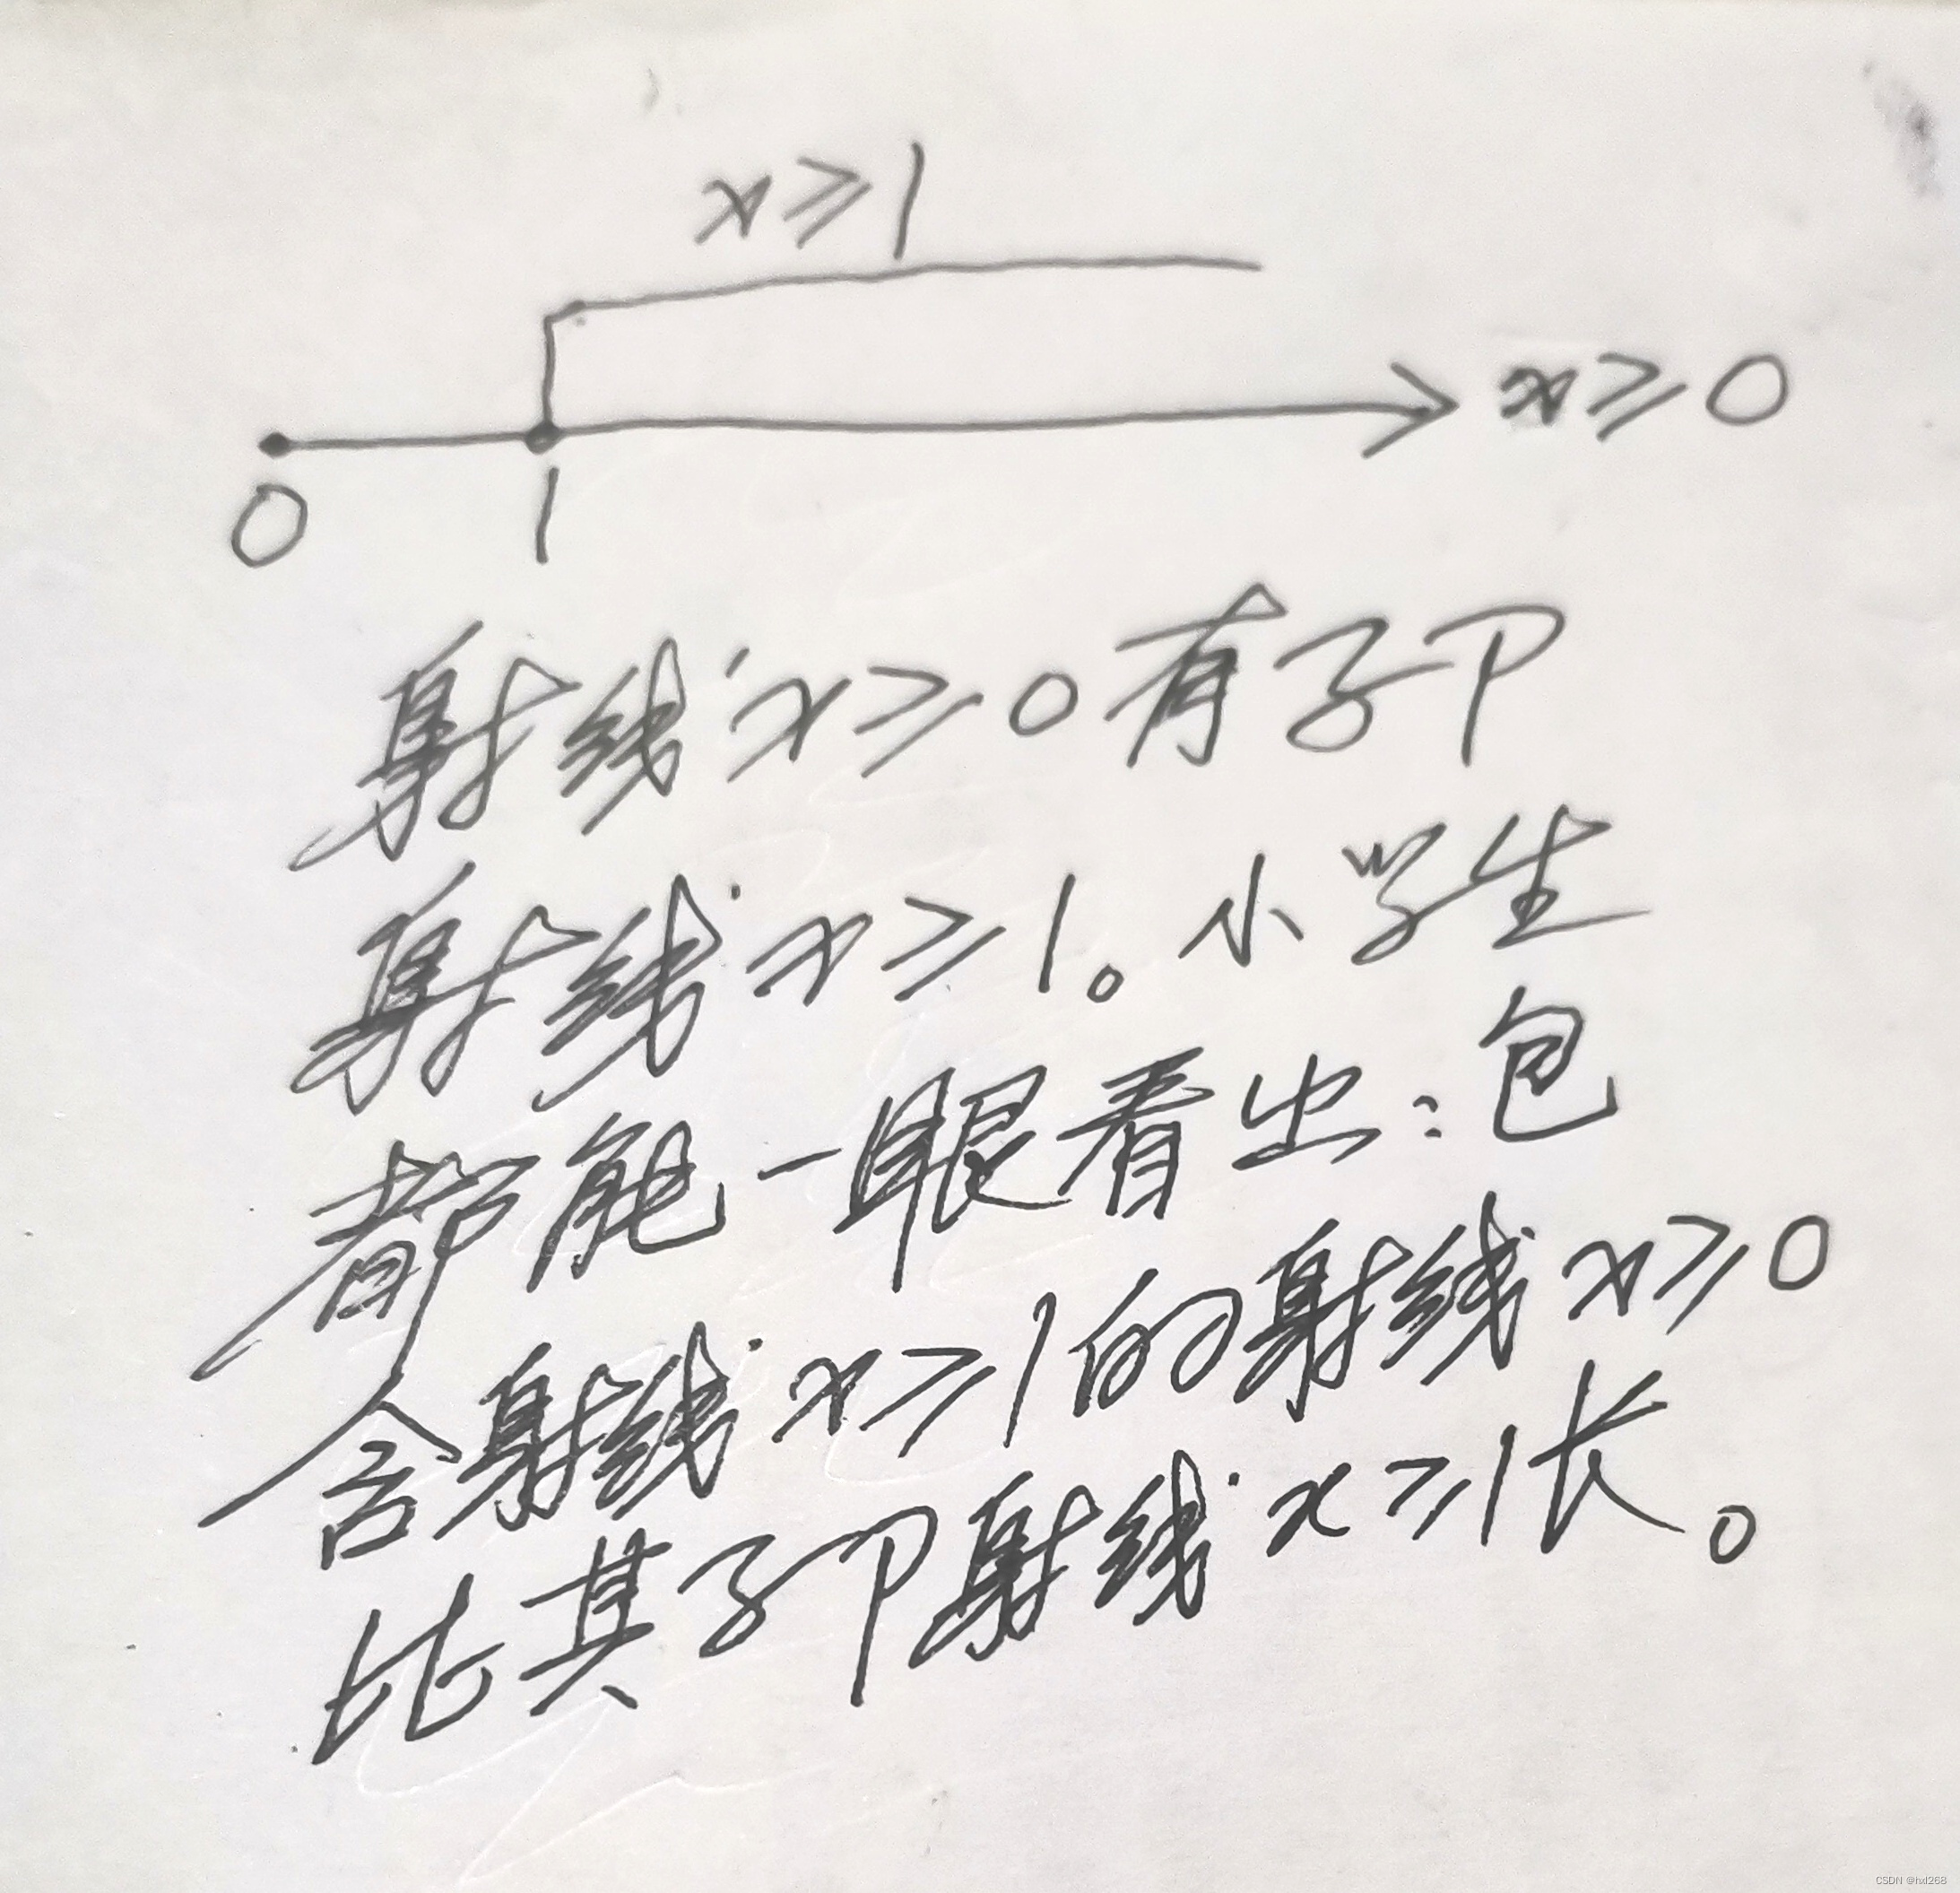 x≥1
x≥0
0 1
射线x≥0有子卩
射线x≥1。小学生
都能一眼看出:包
含射线x≥1的射线x≥0
比其子卩射线x≥1长。
CSDN @hxl268